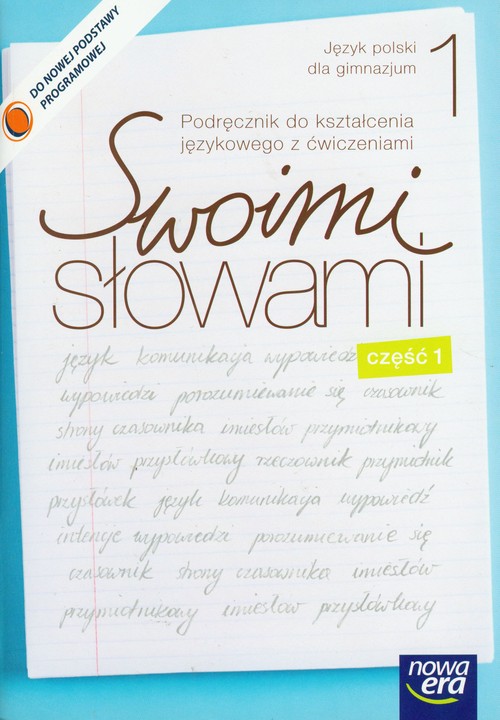 DO NOWEJ PODSTAWY
PROGRAMOWEJ
Język polski
dla gimnazjum
1
Podręcznik do kształcenia
językowego z ćwiczeniami
Swoimi
słowami
język komunikacja wypowiedź
część 1
wypowiedzi porozumiewanie się czasownik
strony czasownika imiesłów przymiotnikowy
imiesłów przysłówkowy rzeczownik przymiotnik
przysłówek język komunikacja wypowiedź
intencje wypowiedzi porozumiewanie się
czasownik strony czasownika imiesłów
przymiotnikowy imiesłów przysłówkowy
nowa
era